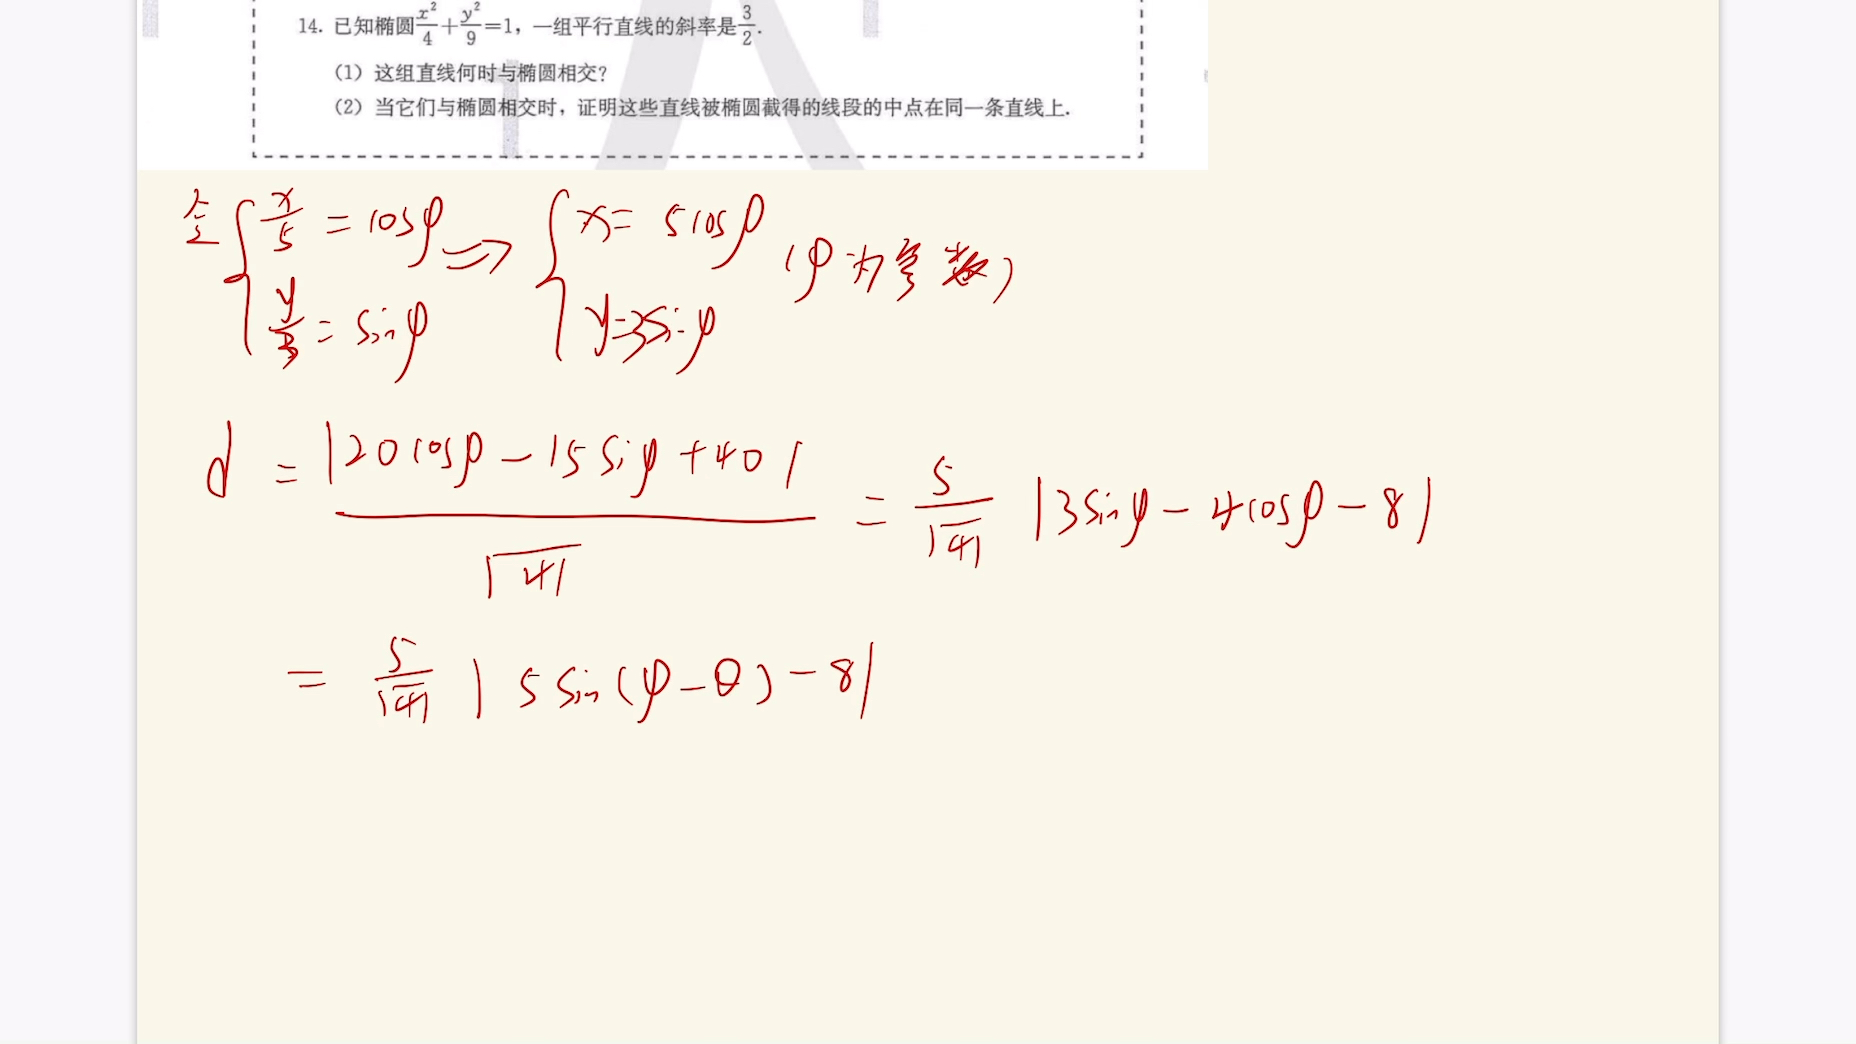 14. 已知椭圆x²/4+y²/9=1，一组平行直线的斜率是3/2.
（1）这组直线何时与椭圆相交？
（2）当它们与椭圆相交时，证明这些直线被椭圆截得的线段的中点在同一条直线上.
令 { x/5 = cosφ ⇒ { x = 5cosφ （φ为参数）
y/3 = sinφ y=3sinφ
d = |20cosφ − 15sinφ + 40| / √41 = 5/√41 |3sinφ − 4cosφ − 8|
= 5/√41 |5sin(φ−θ)−8|